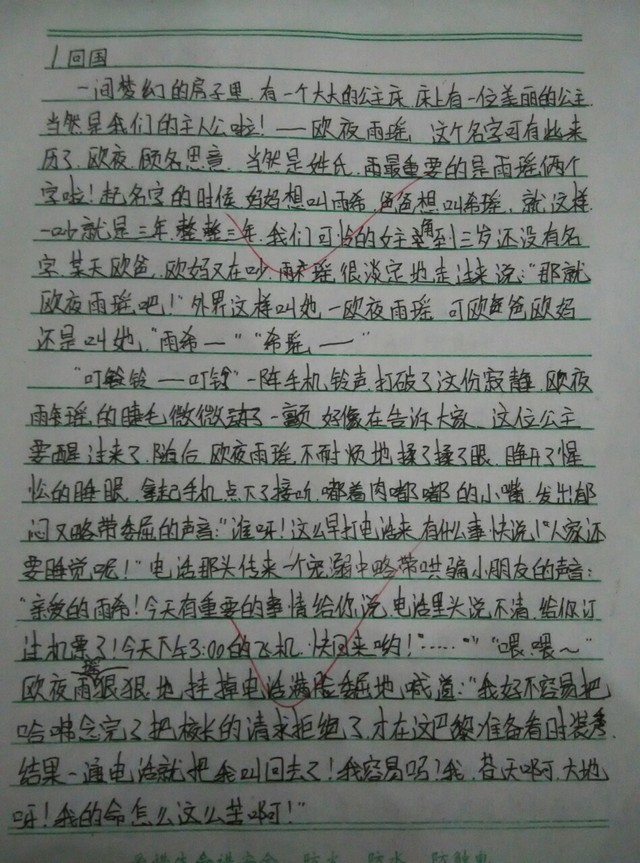 1.回国
一间梦幻的房子里,有一个大大的公主床,床上有一位美丽的公主,
当然是我们的主人公啦!——欧夜雨瑶,这个名字可有些来
历了,欧夜,顾名思意,当然是姓氏,而最重要的是雨瑶俩个
字啦!起名字的时候,妈妈想叫雨希,爸爸想叫希瑶,就这样
一吵就是三年,整整三年,我们可怜的女主角到三岁还没有名
字,某天欧爸,欧妈又在吵,雨瑶很淡定地走过来说:“那就
欧夜雨瑶吧!”外界这样叫她,—欧夜雨瑶,可欧爸爸欧妈
还是叫她,“雨希—”“希瑶,—”
“叮铃铃——叮铃”一阵手机铃声,打破了这份寂静,欧夜
雨瑶的睫毛微微动了一颤,好像在告诉大家,这位公主
要醒过来了,随后,欧夜雨瑶不耐烦地揉了揉了眼,睁开了惺
忪的睡眼,拿起手机点下了接听,嘟着肉嘟嘟的小嘴,发出郁
闷又略带委屈的声音:“谁呀!这么早打电话来,有什么事快说!“人家还
要睡觉呢!”电话那头传来一个宠溺中略带哄骗小朋友的声音:
“亲爱的雨希!今天有重要的事情给你说,电话里头说不清,给你订
过机票了!今天下午3:00的飞机,快回来哟!”……”“喂,喂~”
欧夜雨瑶狠狠地挂掉电话满脸委屈地喊道:“我好不容易把
哈弗念完了,把校长的请求拒绝了,才在这巴黎准备看时装秀,
结果一通电话就把我叫回去了!我容易吗?我,苍天啊,大地
呀!我的命怎么这么苦啊!”